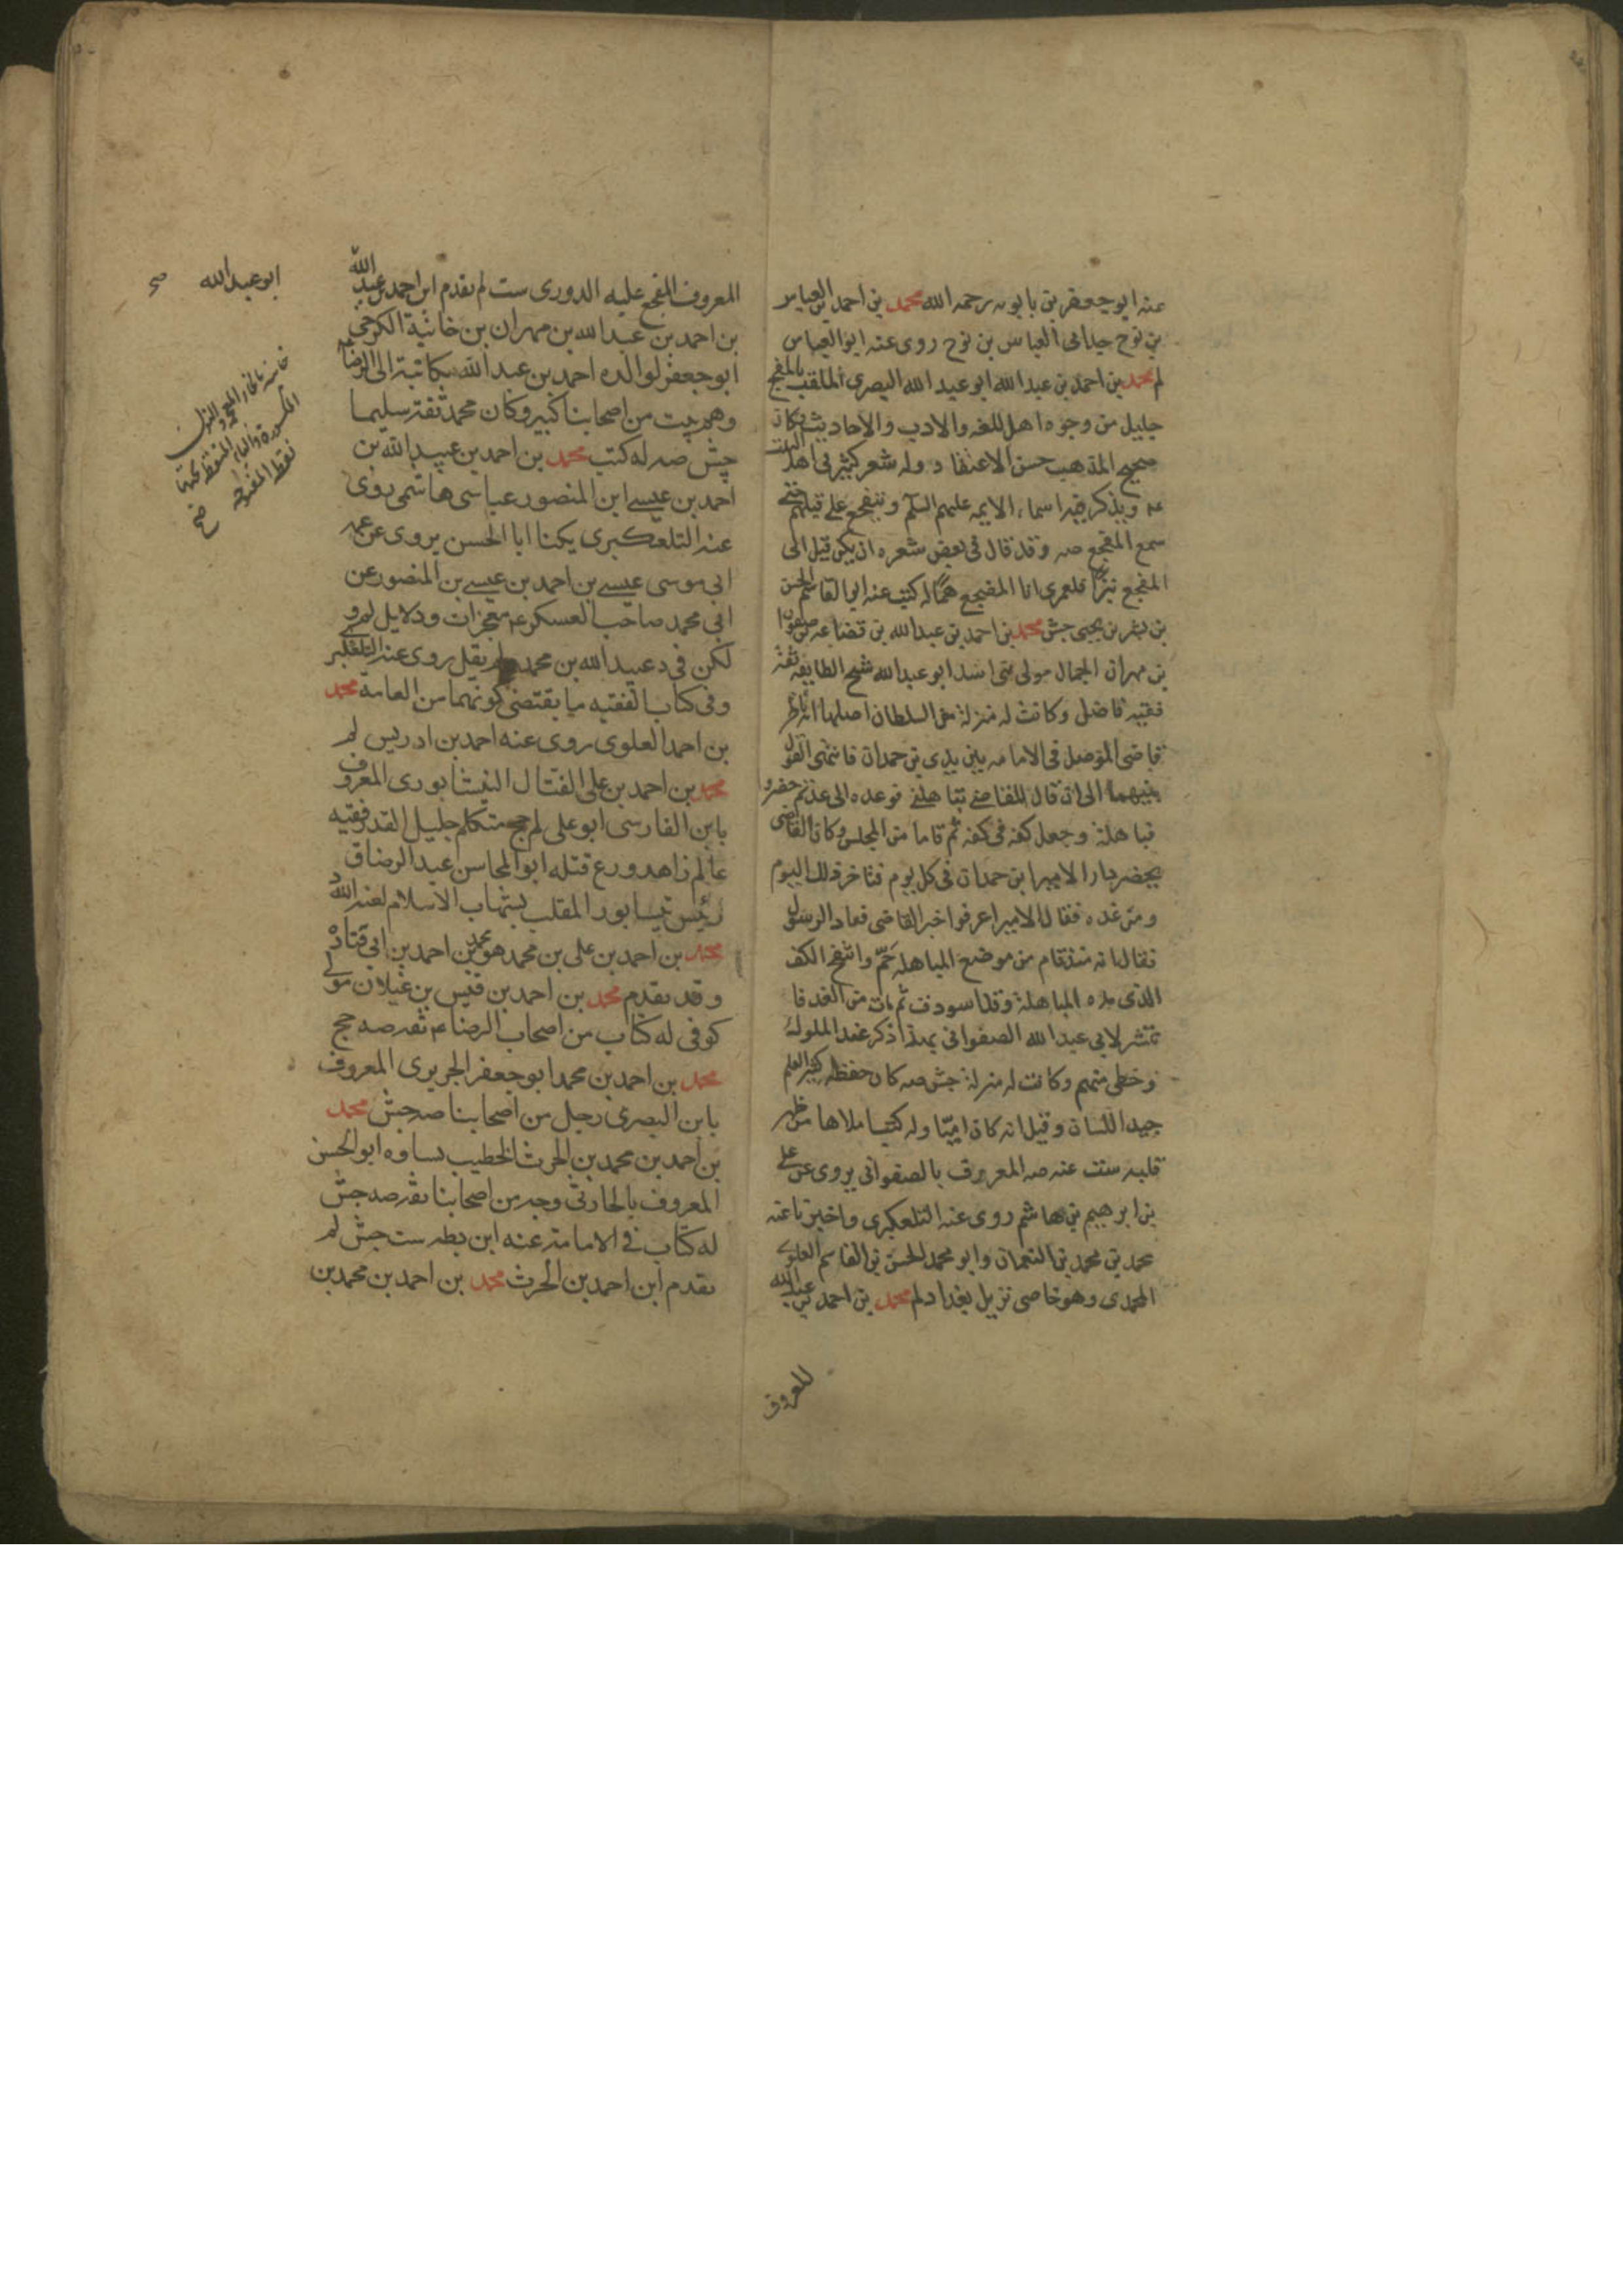 عنه ابو جعفر بن بابويه رحمه الله محمد بن احمد بن العباس
بن نوح جد ابى العباس بن نوح روى عنه ابو العباس
لم محمد بن احمد بن عبد الله ابو عبد الله البصرى الملقب بالمفجع
جليل من وجوه اهل اللغه والادب والاحاديث وكان
صحيح المذهب حسن الاعتقاد وله شعر كثير فى اهل البيت
عم ويذكر فيه اسماء الايمه عليهم السلم ويتفجع على قتلهم حتى
سمع المفجع صه وقد قال فى بعض شعره ان يكن قيل الى
المفجع نبزا فلعمرى انا المفجع همّا له كتب عنه ابو القاسم الحسن
بن بشر بن يحيى جش محمد بن احمد بن عبد الله بن قضاعه بن صفوان
بن مهران الجمال مولى بنى اسد ابو عبد الله شيخ الطايفه ثقة
فقيه فاضل وكانت له منزلة من السلطان اصلها انه ناظر
قاضى الموصل فى الامامه بين يدى بن حمدان فانتهى القول
بينهما الى ان قال للقاضى تباهلنى فوعده الى غد ثم حضروا
فباهله وجعل كفه فى كفه ثم قاما من المجلس وكان القاضى
يحضر دار الامير ابن حمدان فى كل يوم فتاخر ذلك اليوم
ومن غده فقال الامير اعرفوا خبر القاضى فعاد الرسول
فقال انه منذ قام من موضع المباهله حمّ وانتفخ الكف
الذى مده المباهلة وقد اسودت ثم مات من الغد فا
نتشر لابى عبد الله الصفوانى بهذا ذكر عند الملوك
وحظى منهم وكانت له منزلة جش صه كان حفظه كثير العلم
جيد اللسان وقيل انه كان اميّا وله كتب املاها من ظهر
قلبه ست عنه صه المعروف بالصفوانى يروى عن على
بن ابرهيم بن هاشم روى عنه التلعكبرى واخبرنا عنه
محمد بن محمد بن النعمان وابو محمد الحسن بن القاسم العلوى
المحمدى وهو خاصى نزيل بغداد لم محمد بن احمد بن عبد الله
المعروف
المعروف المفجع عليه الدورى ست لم تقدم ابن احمد بن عبد الله
بن احمد بن عبد الله بن مهران بن خانبة الكرخى
ابو جعفر لوالده احمد بن عبد الله مكاتبة الى الرضا ع
وهم بيت من اصحابنا كبير وكان محمد ثقة سليما
جش صه له كتب محمد بن احمد بن عبيد الله بن
احمد بن عيسى ابن المنصور عباسى هاشمى روى
عنه التلعكبرى يكنا ابا الحسن يروى عن عمه
ابى موسى عيسى بن احمد بن عيسى بن المنصور عن
ابى محمد صاحب العسكر ع معجزات ودلايل لم
لكن فى د عبيد الله بن محمد ولم يقل روى عنه التلعكبر
وفى كتاب الفقيه ما يقتضى كونهما من العامة محمد
بن احمد العلوى روى عنه احمد بن ادريس لم
محمد بن احمد بن على الفتال النيشابورى المعروف
بابن الفارسى ابو على لم جح متكلم جليل القدر فقيه
عالم زاهد ورع قتله ابو المحاسن عبد الرزاق
رئيس نيسابور الملقب بشهاب الاسلام لعنه الله
محمد بن احمد بن على بن محمد هو محمد بن احمد بن ابى قتادة
وقد تقدم محمد بن احمد بن قيس بن غيلان مولى
كوفى له كتاب من اصحاب الرضا ع ثقه صه جح
محمد بن احمد بن محمد ابو جعفر الجريرى المعروف
بابن البصرى رجل من اصحابنا صه جش محمد
بن احمد بن محمد بن الحرث الخطيب بساوه ابو الحسن
المعروف بالحارثى وجه من اصحابنا ثقه صه جش
له كتاب فى الامامة عنه ابن بطه ست جش لم
تقدم ابن احمد بن الحرث محمد بن احمد بن محمد بن
ابو عبد الله